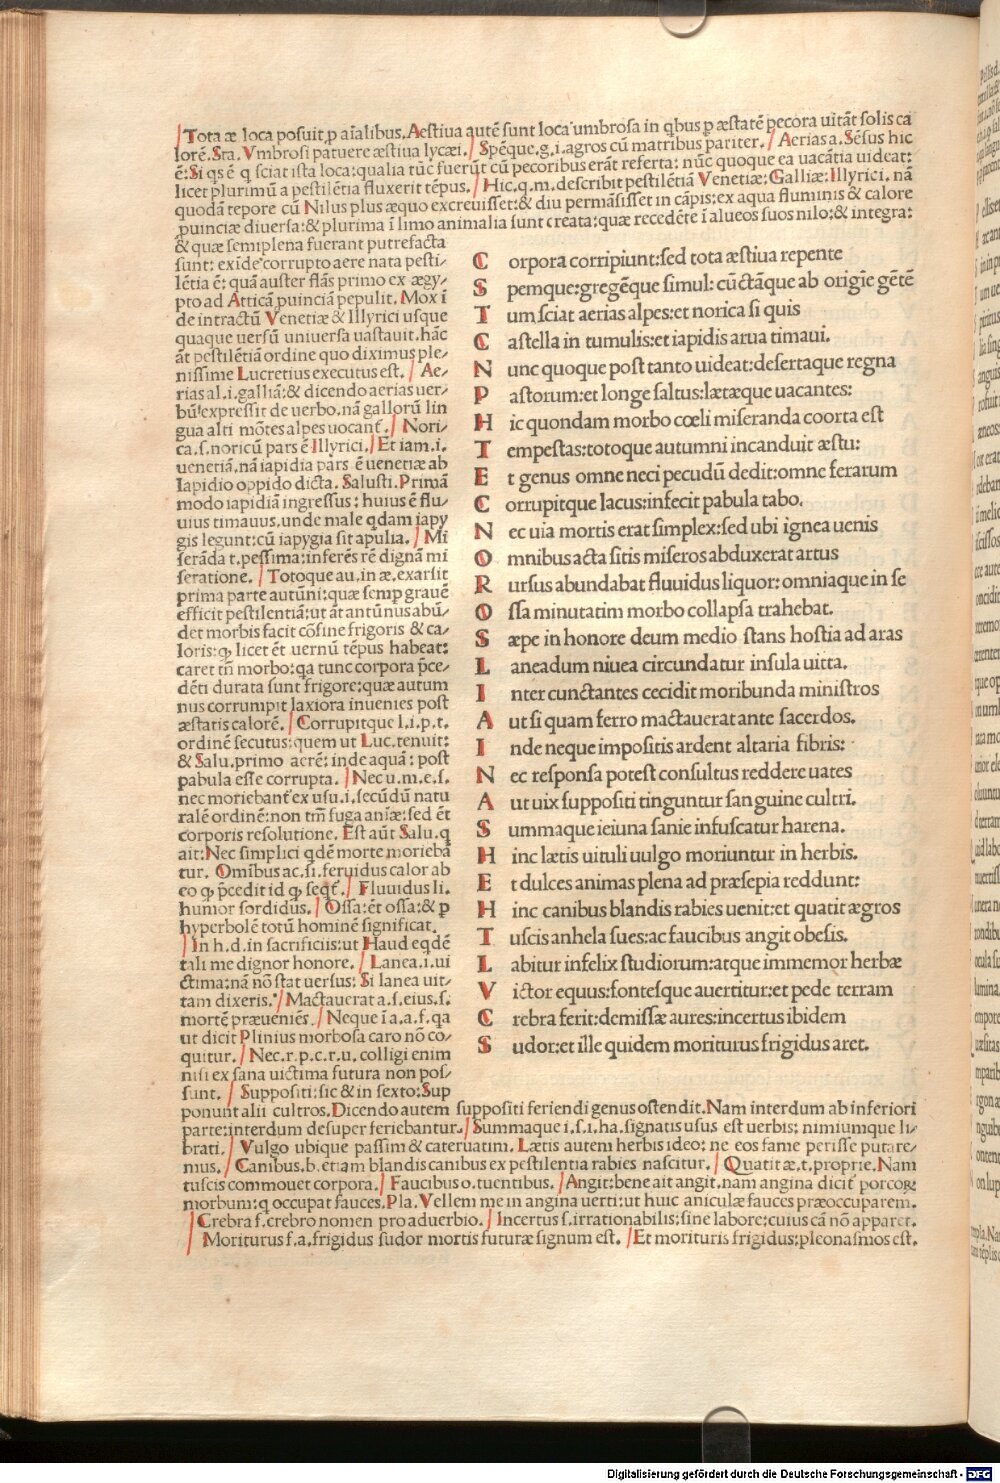 Tota æ loca posuit ꝓ aīalibus. Aestiua autē sunt loca umbrosa in qbus ꝑ æstatē pecora uitāt solis ca
lorē. Sta. Vmbrosi patuere æstiua lycæi. Spēque.g.i.agros cū matribus pariter. Aerias a. Sēsus hic
ē: Siqs ē q sciat ista loca: qualia tūc fuerūt cū pecoribus erāt referta: nūc quoque ea uacātia uideat:
licet plurimū a pestilētia fluxerit tēpus. Hic.q.m.describit pestilētiā Venetiæ: Galliæ: Illyrici. nā
quodā tepore cū Nilus plus æquo excreuisset: & diu permāsisset in cāpis: ex aqua fluminis & calore
ꝓuinciæ diuersa: & plurima ī limo animalia sunt creata: quæ recedēte ī alueos suos nilo: & integra:
& quæ semiplena fuerant putrefacta
sunt: exīde corrupto aere nata pesti/
lētia ē: quā auster flās primo ex ægy/
pto ad Atticā ꝓuinciā pepulit. Mox ī
de intractū Venetiæ & Illyrici usque
quaque uersū uniuersa uastauit. hāc
āt pestilētiā ordine quo diximus ple/
nissime Lucretius executus est. Ae/
rias al.i.galliā: & dicendo aerias uer/
bū expressit de uerbo. nā gallorū lin
gua alti mōtes alpes uocant. Nori/
ca.s.noricū pars ē Illyrici. Et iam.i.
uenetiā. nā iapidia pars ē uenetiæ ab
Iapidio oppido dicta. Salusti. Primā
modo iapidiā ingressus: huius ē flu/
uius timauus. unde male qdam iapy
gis legunt: cū iapygia sit apulia. Mi
serāda t.pessima: inferēs rē dignā mi
seratione. Totoque au. in æ. exarsit
prima parte autūni: quæ semp grauē
efficit pestilentiā: ut āt antūnus abū/
det morbis facit cōfine frigoris & ca/
loris: ꝙ licet ēt uernū tēpus habeat:
caret tn̄ morbo: qa tunc corpora p̄ce/
dēti durata sunt frigore: quæ autum
nus corrumpit laxiora inuenies post
æstatis calorē. Corrupitque l.i.p.t.
ordinē secutus: quem ut Luc. tenuit:
& Salu. primo aerē: inde aquā: post
pabula esse corrupta. Nec u.m.e.s.
nec moriebant ex usu.i.secūdū natu
ralē ordinē: non trm̄ fuga aniæ: sed ēt
corporis resolutione. Est aūt Salu. q
ait: Nec simplici qdē morte moriebā
tur. Omībus ac. si. feruidus calor ab
eo ꝙ p̄cedit id ꝙ seqt. Fluuidus li.
humor sordidus. Ossa: ēt ossa: & ꝑ
hyperbolē totū hominē significat.
In h.d. in sacrificiis: ut Haud eqdē
tali me dignor honore. Lanea.i.ui
ctima: nā nō stat uersus: Si lanea uit/
tam dixeris. Mactauerat a.s.eius.s.
mortē præueniēs. Neque ī a.a.f.qa
ut dicit Plinius morbosa caro nō co/
quitur. Nec.r.p.c.r.u. colligi enim
nisi ex sana uictima futura non pos/
sunt. Suppositi: sic & in sexto: Sup
ponunt alii cultros. Dicendo autem suppositi feriendi genus ostendit. Nam interdum ab inferiori
parte: interdum desuper feriebantur. Summaque i.s.i.ha. signatis usus est uerbis: nimiumque li/
brati. Vulgo ubique passim & cateruatim. Lætis autem herbis ideo: ne eos fame perisse putare/
mus. Canibus.b. etiam blandis canibus ex pestilentia rabies nascitur. Quatit æ.t. proprie. Nam
tuscis commouet corpora. Faucibus o. tuentibus. Angit: bene ait angit. nam angina dicit porcoꝝ
morbum: q occupat fauces. Pla. Vellem me in angina uerti: ut huic aniculæ fauces præoccuparem.
Crebra s. crebro nomen pro aduerbio. Incertus s. irrationabilis: sine labore: cuius cā nō apparet.
Moriturus f.a. frigidus sudor mortis futuræ signum est. Et morituris frigidus: pleonasmos est.
C orpora corripiunt: sed tota æstiua repente
S pemque: gregēque simul: cūctāque ab origīe gētē
T um sciat aerias alpes: et norica si quis
C astella in tumulis: et iapidis arua timaui.
N unc quoque post tanto uideat: desertaque regna
P astorum: et longe saltus: lætæque uacantes:
H ic quondam morbo cœli miseranda coorta est
T empestas: totoque autumni incanduit æstu:
E t genus omne neci pecudū dedit: omne ferarum
C orrupitque lacus: infecit pabula tabo.
N ec uia mortis erat simplex: sed ubi ignea uenis
O mnibus acta sitis miseros abduxerat artus
R ursus abundabat fluuidus liquor: omniaque in se
O ssa minutatim morbo collapsa trahebat.
S æpe in honore deum medio stans hostia ad aras
L aneadum niuea circundatur insula uitta.
I nter cunctantes cecidit moribunda ministros
A ut si quam ferro mactauerat ante sacerdos.
I nde neque impositis ardent altaria fibris:
N ec responsa potest consultus reddere uates
A ut uix suppositi tinguntur sanguine cultri.
S ummaque ieiuna sanie infuscatur harena.
H inc lætis uituli uulgo moriuntur in herbis.
E t dulces animas plena ad præsepia reddunt:
H inc canibus blandis rabies uenit: et quatit ægros
T uscis anhela sues: ac faucibus angit obesis.
L abitur infelix studiorum: atque immemor herbæ
V ictor equus: fontesque auertitur: et pede terram
C rebra ferit: demissæ aures: incertus ibidem
S udor: et ille quidem moriturus frigidus aret.
Digitalisierung gefördert durch die Deutsche Forschungsgemeinschaft - DFG